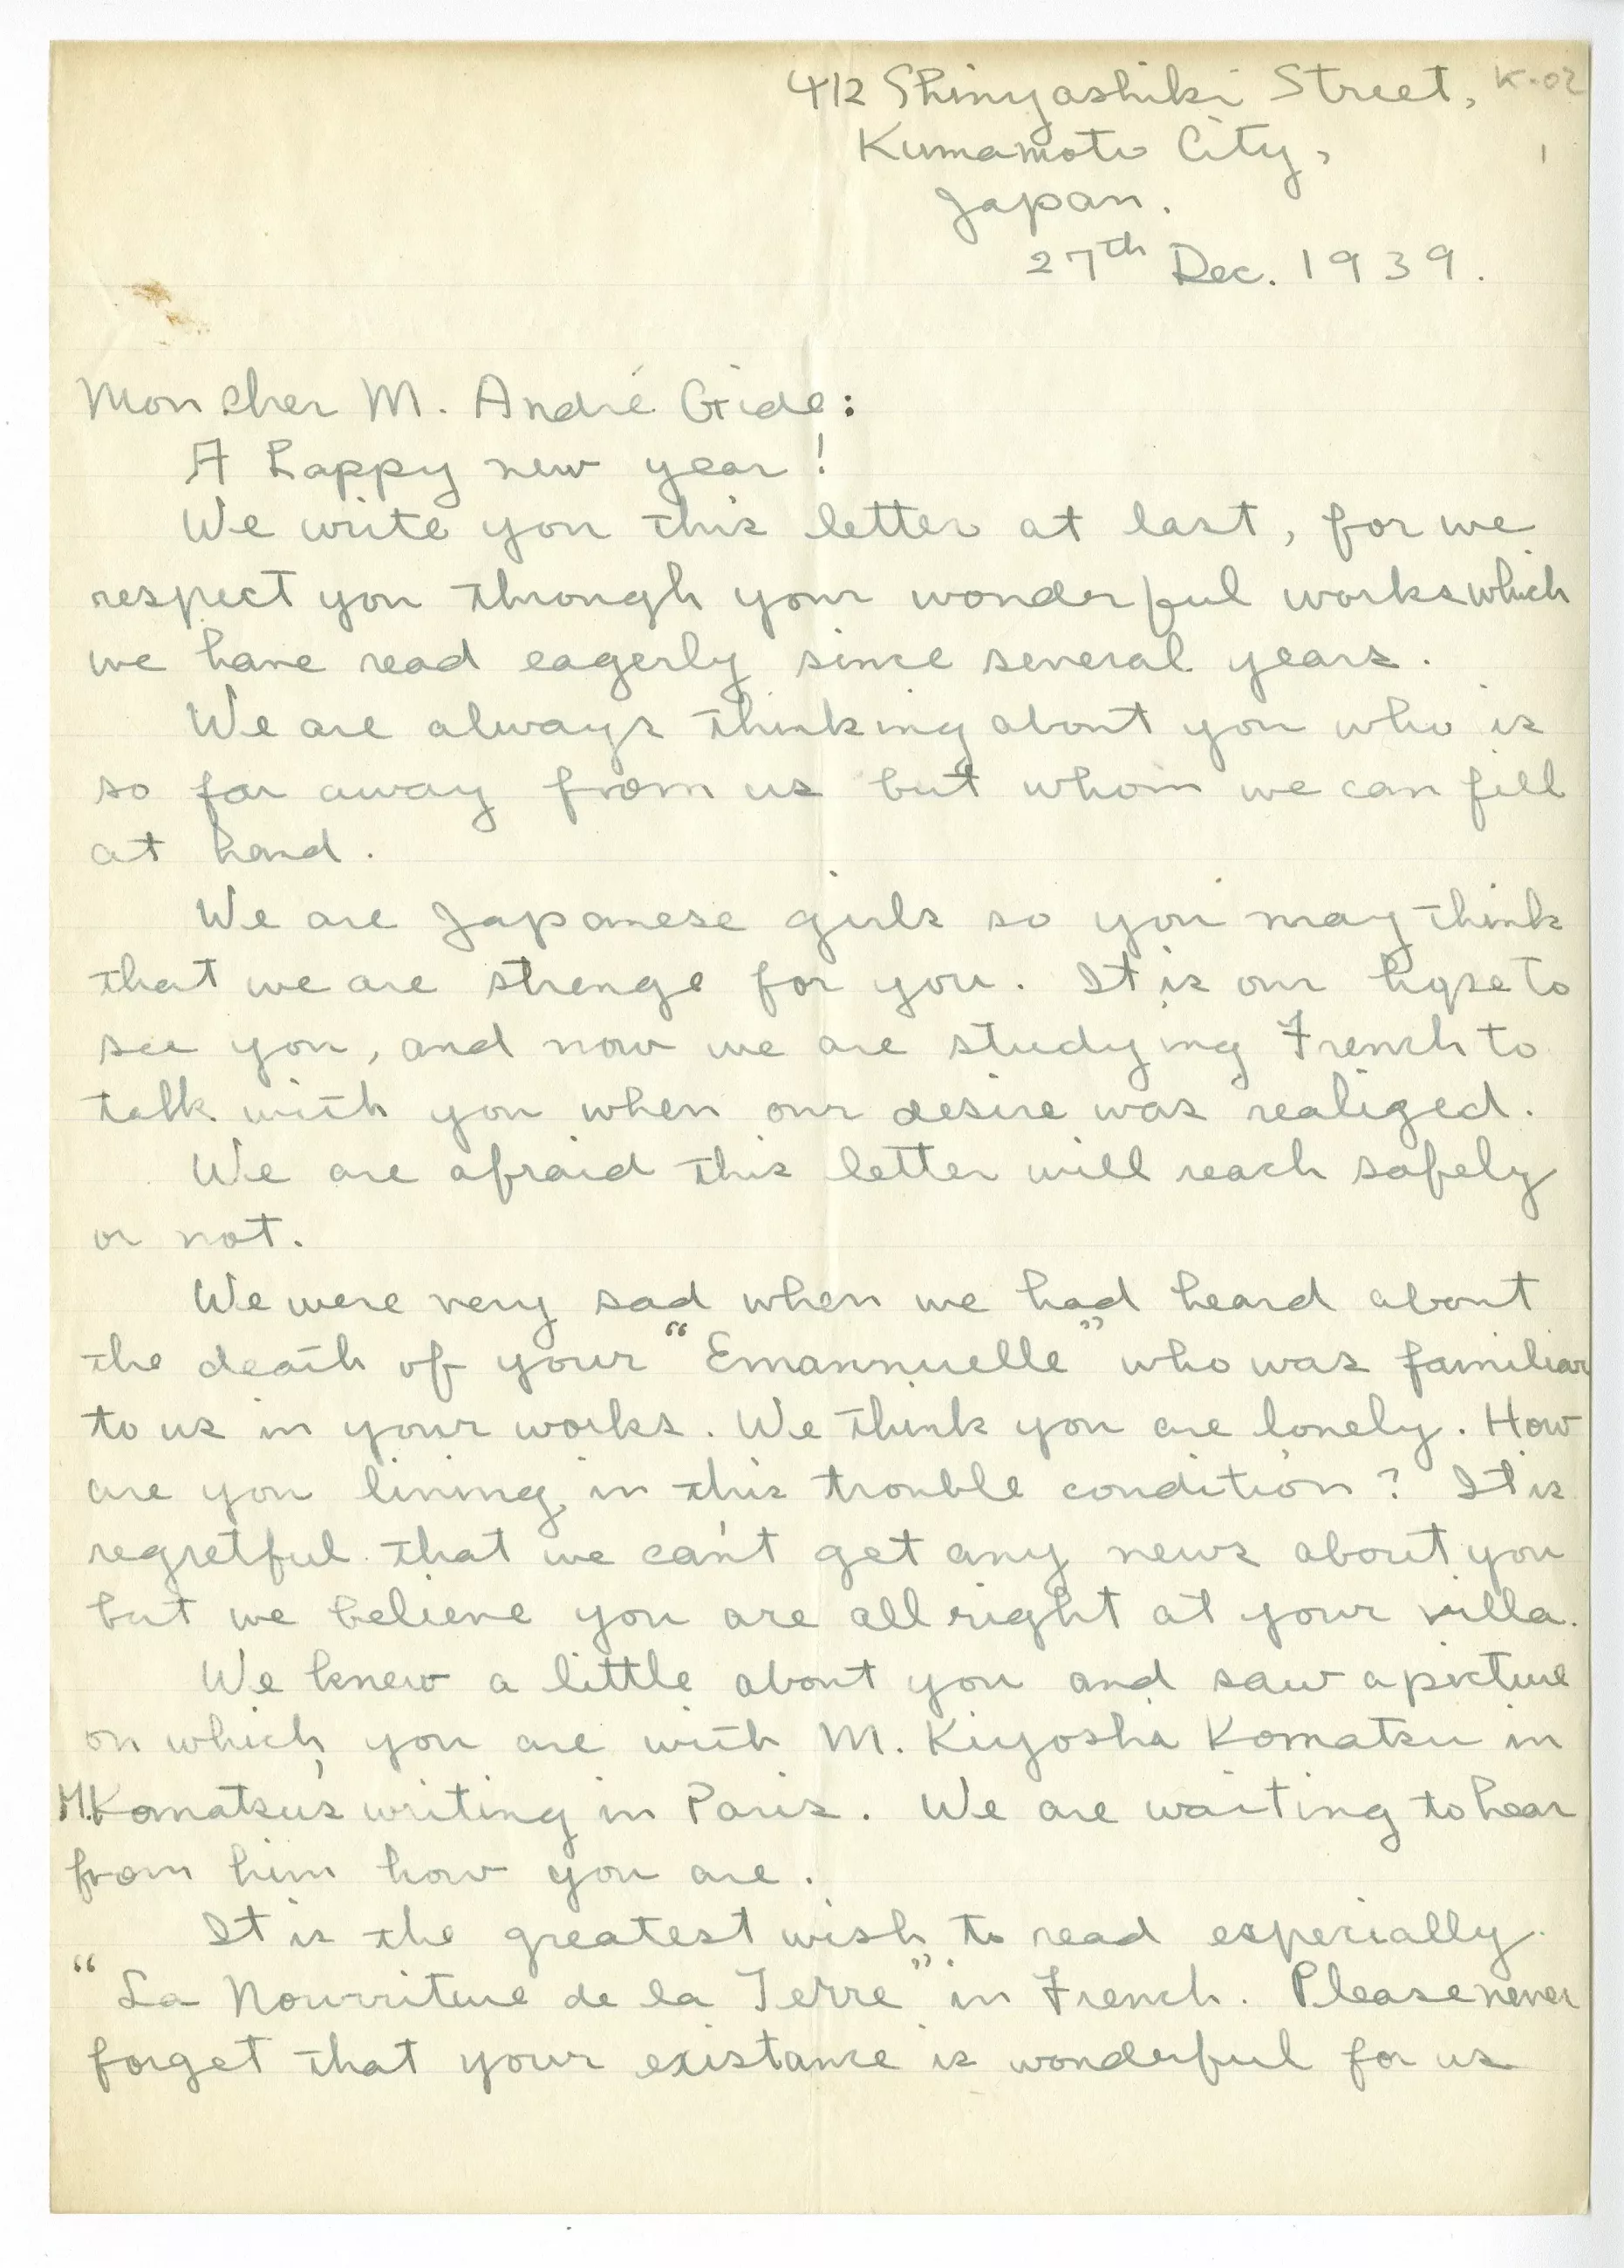 412 Shinyashiki Street, K-02
Kumamoto City, 1
Japan.
27th Dec. 1939.
Mon cher M. André Gide:
A happy new year!
We write you this letter at last, for we
respect you through your wonderful works which
we have read eagerly since several years.
We are always thinking about you who is
so far away from us but whom we can fill
at hand.
We are Japanese girls so you may think
that we are strenge for you. It is our hope to
see you, and now we are studying French to
talk with you when our desire was realized.
We are afraid this letter will reach safely
or not.
We were very sad when we had heard about
the death of your "Emannuelle" who was familiar
to us in your works. We think you are lonely. How
are you living in this trouble condition? It is
regretful that we can't get any news about you
but we believe you are all right at your villa.
We knew a little about you and saw a picture
on which you are with M. Kiyoshi Komatsu in
M. Komatsu's writing in Paris. We are waiting to hear
from him how you are.
It is the greatest wish to read especially
"La Nourriture de la Terre" in French. Please never
forget that your existance is wonderful for us